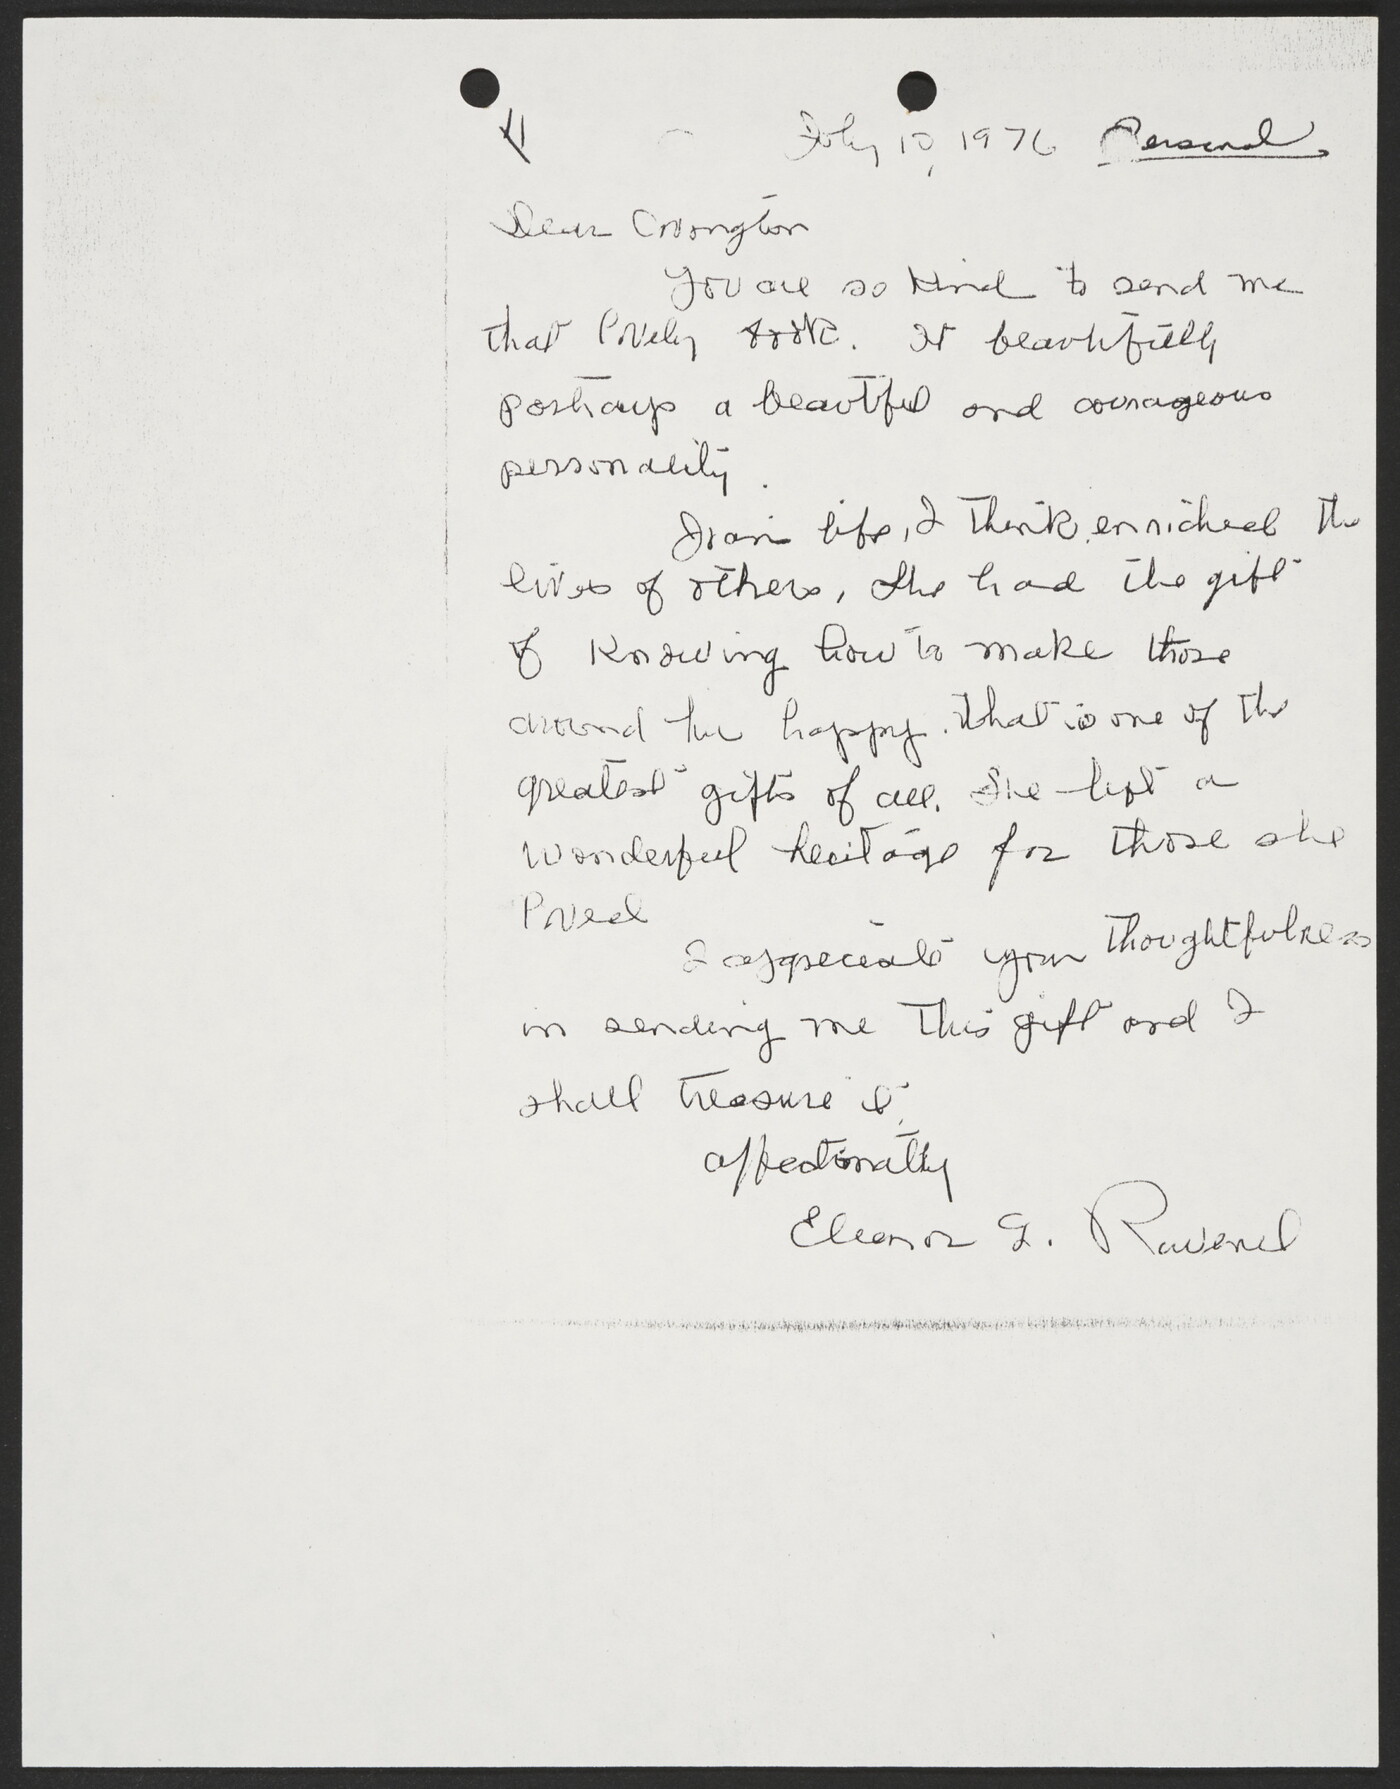 July 10, 1976 Personal
Dear Covington
You are so kind to send me
that lovely book. It beautifully
portrays a beautiful and courageous
personality.
life, I think, enriched the
lives of others, she had the gift
of knowing how to make those
around her happy. That is one of the
greatest gifts of all. She left a
wonderful heritage for those she
loved
I appreciate your thoughtfulness
in sending me this gift and I
shall treasure it.
affectionately
Eleanor G. Ravenel